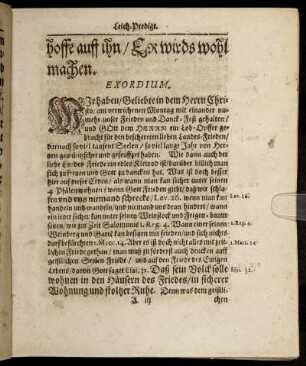 Leich-Predigt.
hoffe auff ihn / Er wirds wohl
machen.
EXORDIUM.
WIr haben / Geliebte in dem Herrn Chri-
sto / am verwichenen Montag mit einander nu-
mehr unser Frieden und Danck-Fest gehalten /
und GOtt dem HERRN ein Lob-Opffer ge-
bracht für den hochtheuren lieben Landes-Frieden /
darnach soviel tausend Seelen / so viel lange Jahr von Her-
tzen gewünschet und geseuffzet haben. Wie dann auch der
liebe Landes-Friede ein edles Kleinod ist / darüber billich man
sich zufreuen und Gott zu dancken hat. Was ist doch besser
hier auff dieser Erden / als wann man kan sicher unter seinem
wenn Gott Frieden giebt / daß wir schla-
fen und uns niemand schrecke / Lev. 26. wenn man kan
handeln und wandeln / und niemand uns dran hindert / wann
ein jeder sicher kan unter seinen Weinstock und Feigen-baum
wie zur Zeit Salomonis 1. Reg. 4. Wann einer seinen
Weinberg und Garten kan besitzen mit frieden / und sich nichts
darff befürchten 1. Macc. 14. Aber es ist doch nicht alles mit zeit-
lichen Friede gethan / man muß zu foderst auch dencken auff
geistlichen Seelen Friede / und auff den Friede des Ewigen
Lebens / davon Gott saget Esai. 32. Daß sein Volck solle
wohnen in den Häusern des Friedes / in sicherer
Wohnung und stoltzer Ruhe. Denn was dem geistli-
A iij
chen
Lev. 26.
1. Reg. 4.
1. Macc. 14.
Esai. 32.